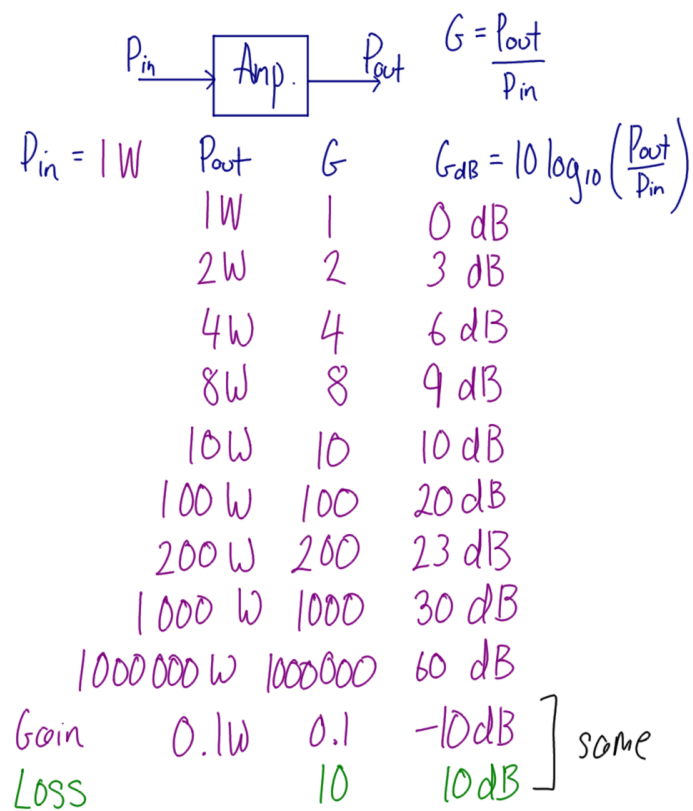 Pin Amp. Pout G = Pout / Pin
Pin = 1W Pout G GdB = 10 log10 (Pout / Pin)
1W 1 0 dB
2W 2 3 dB
4W 4 6 dB
8W 8 9 dB
10W 10 10 dB
100 W 100 20 dB
200 W 200 23 dB
1000 W 1000 30 dB
1000000 W 1000000 60 dB
Gain 0.1W 0.1 -10dB
same
Loss 10 10dB